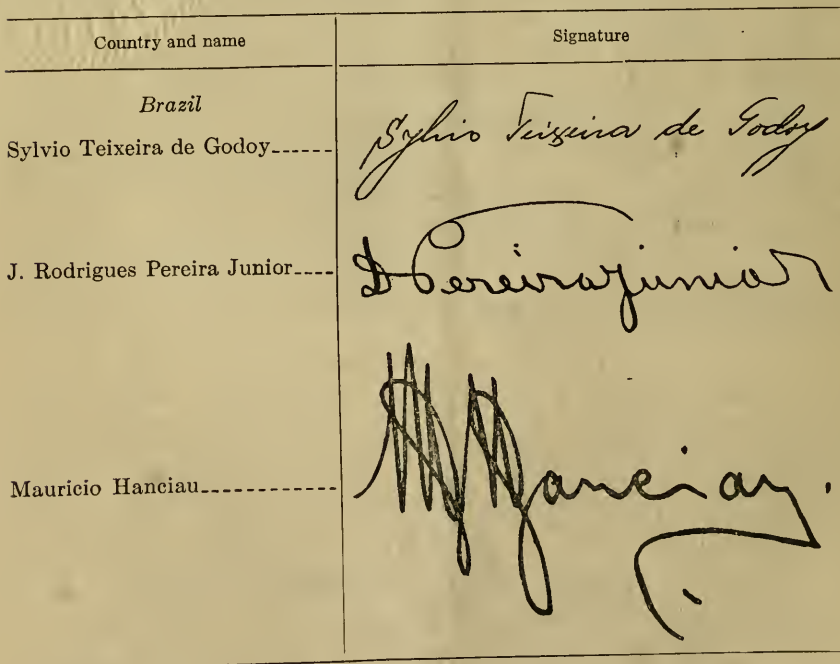 Country and name
Signature
Brazil
Sylvio Teixeira de Godoy------
Sylvio Teixeira de Godoy
J. Rodrigues Pereira Junior----
Pereira Junior
Mauricio Hanciau------------
M Hanciau.